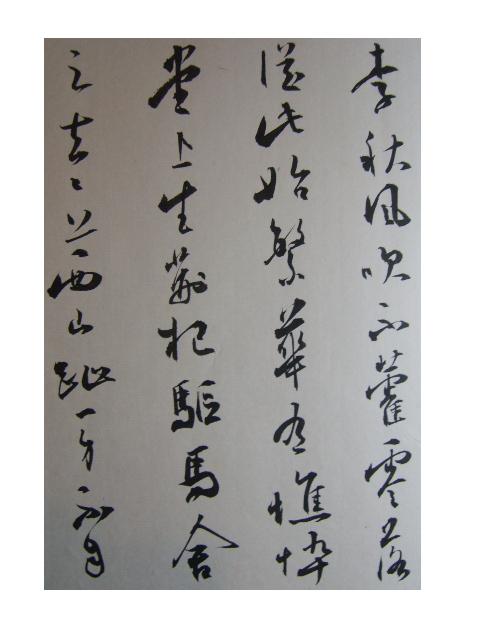 李秋風吹飛藿零落
從此始繁華有憔悴
堂上生荊杞驅馬舍
之去々上西山趾一身不自